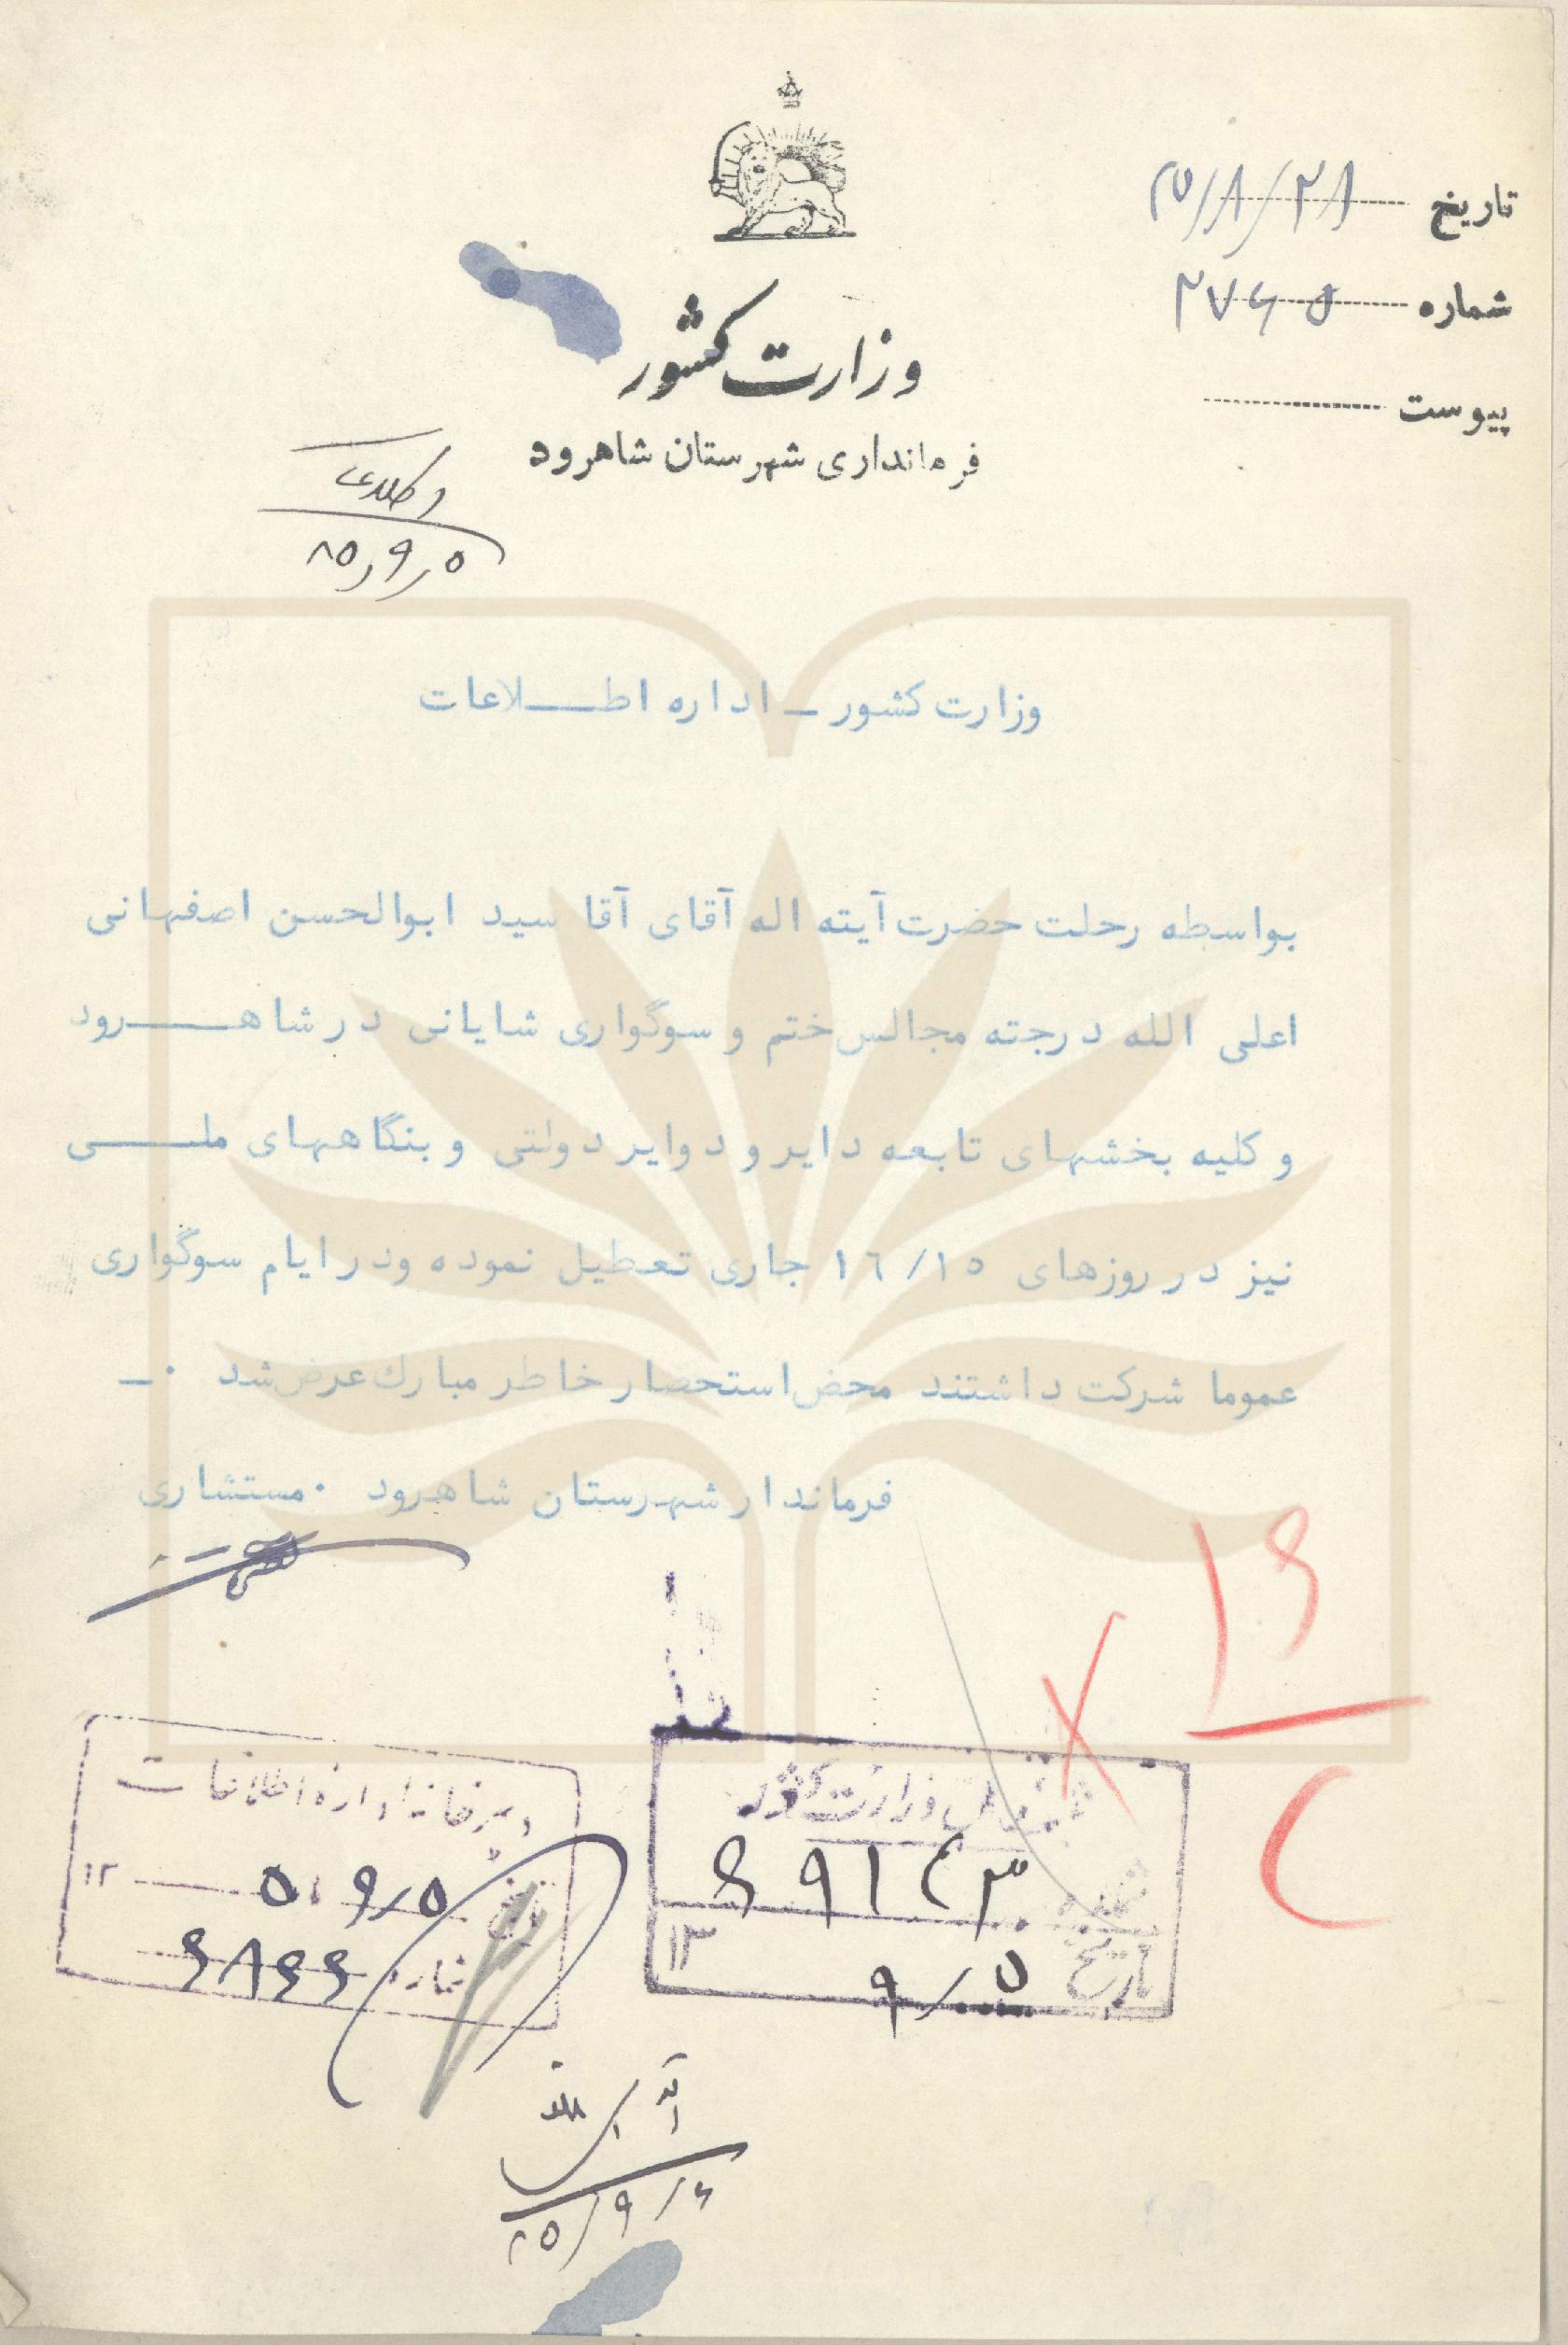 تاریخ ۲۵/۸/۲۸
شماره ۲۷۶۵
پیوست
وزارت کشور
فرمانداری شهرستان شاهرود
۲۵ر۹ر۵
وزارت کشور ــ اداره اطــــلاعات
بواسطه رحلت حضرت آیته اله آقای آقا سید ابوالحسن اصفهانی
اعلی الله درجته مجالس ختم و سوگواری شایانی در شاهـــــرود
و کلیه بخشهای تابعه دایر و دوایر دولتی و بنگاههای ملـــــی
نیز در روزهای ۱۶/۱۵ جاری تعطیل نموده ودر ایام سوگواری
عموما شرکت داشتند محض استحصار خاطر مبارك عرض شد ۰ــ
فرماندار شهرستان شاهرود ۰ مستشاری
۱۶
دبیرخانه اداره اطلاعات
تاریخ ۵ر۹ر ۱۳
شماره ۶۸۶۶
وزارت کشور
شماره
تاریخ ۹/۵ ۱۳
۲۵/۹/۶